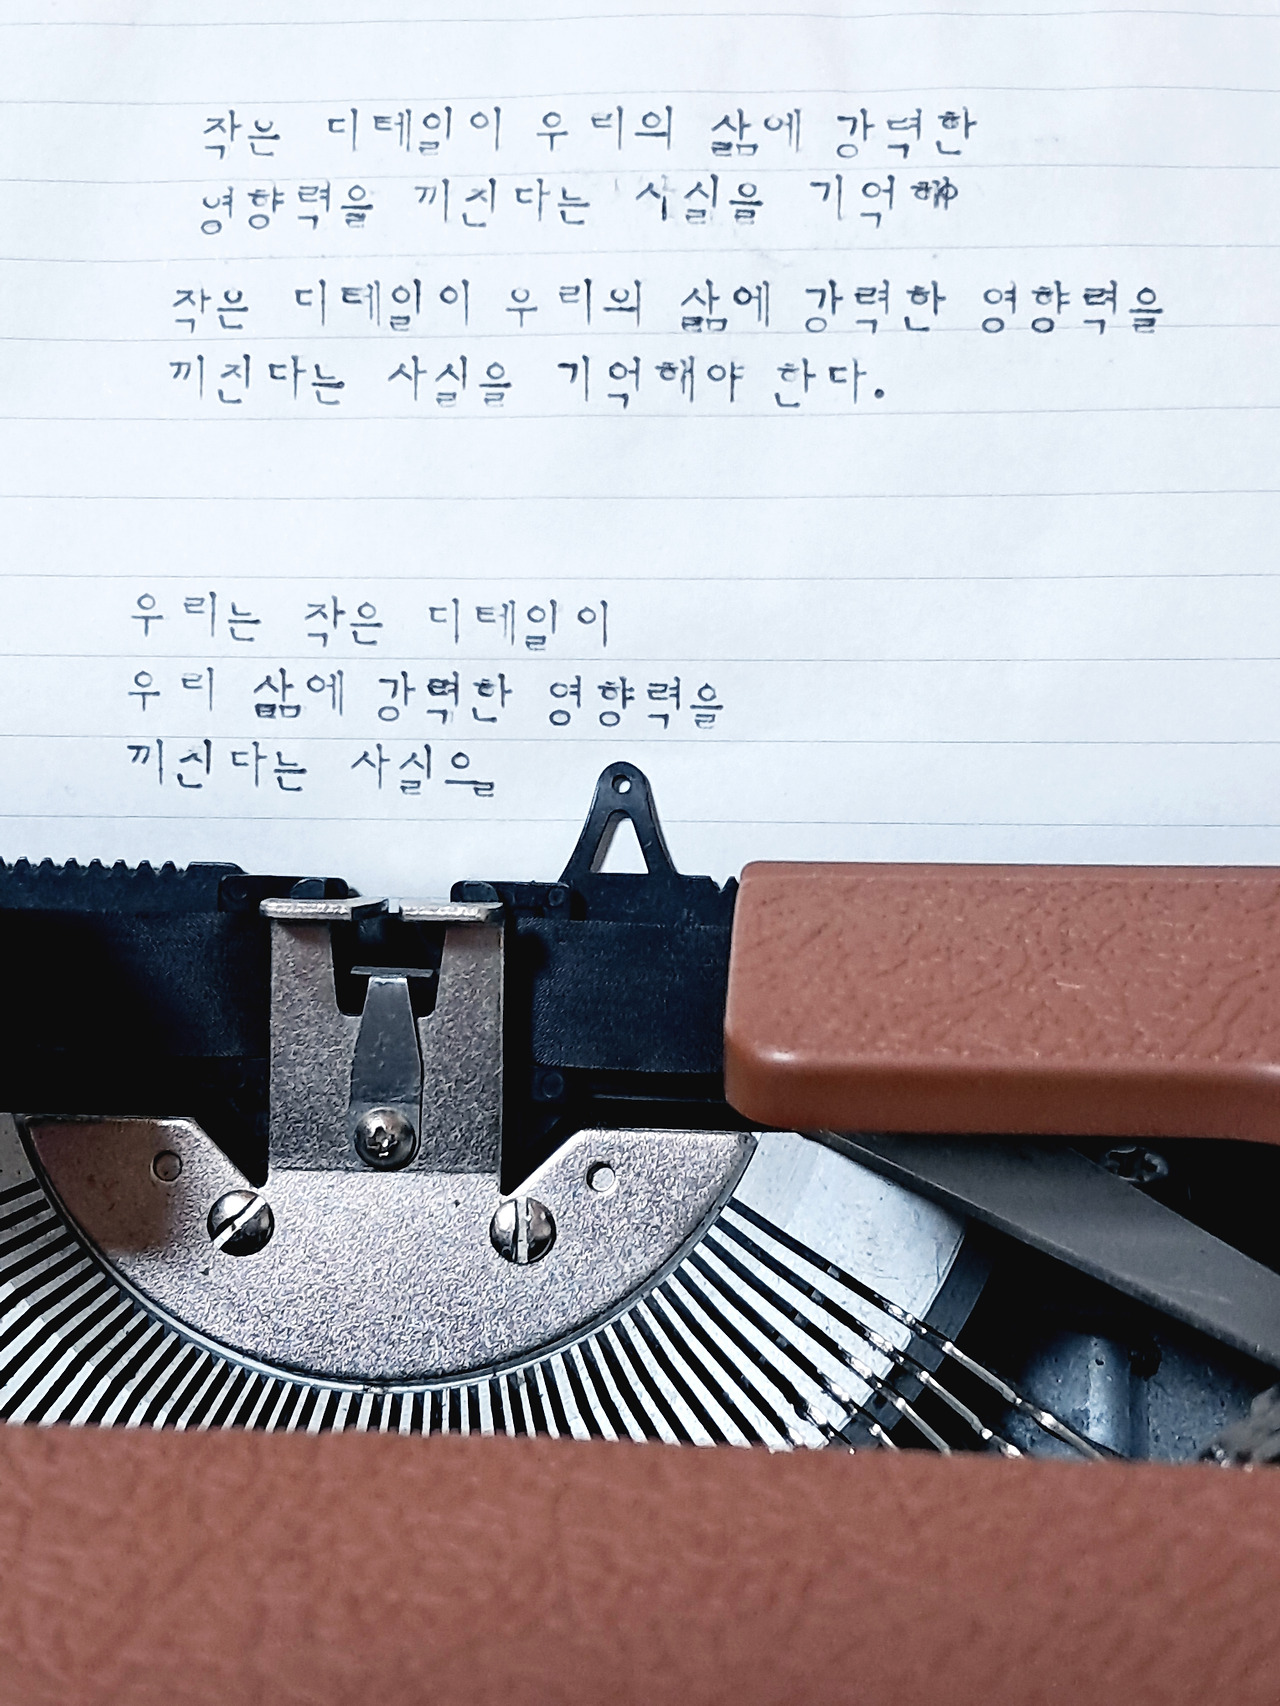 작은 디테일이 우리의 삶에 강력한
영향력을 끼진다는 사실을 기억
작은 디테일이 우리의 삶에 강력한 영향력을
끼진다는 사실을 기억해야 한다.
우리는 작은 디테일이
우리 삶에 강력한 영향력을
끼진다는 사실을